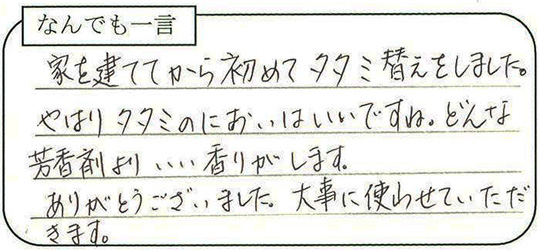 なんでも一言
家を建ててから初めてタタミ替えをしました。
やはりタタミのにおいはいいですね。どんな
芳香剤よりいい香りがします。
ありがとうございました。大事に使わせていただ
きます。